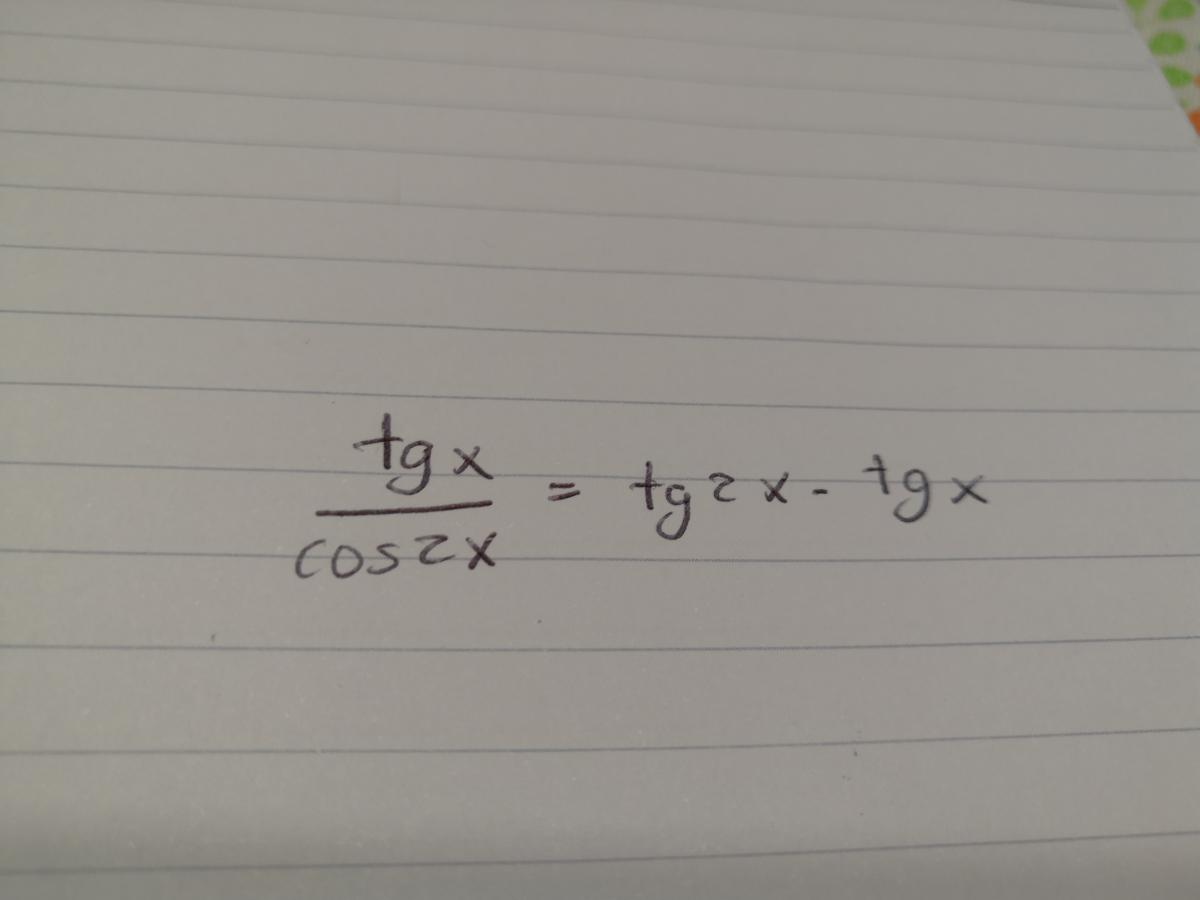 tg x / cos 2x = tg 2x - tg x